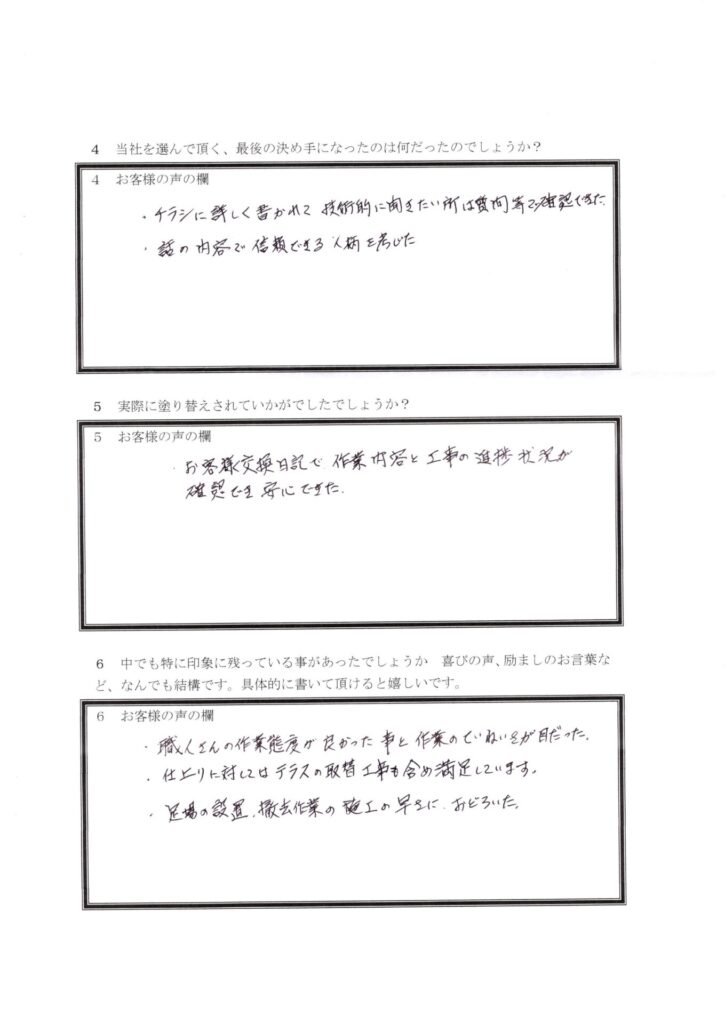 4 当社を選んで頂く、最後の決め手になったのは何だったのでしょうか？
4 お客様の声の欄
・チラシに詳しく書かれて 技術的に聞きたい所は質問等で確認できた。
・話の内容で信頼できる人柄を感じた
5 実際に塗り替えされていかがでしたでしょうか？
5 お客様の声の欄
・お客様交換日記で、作業内容と工事の進捗状況が
確認でき安心できた。
6 中でも特に印象に残っている事があったでしょうか 喜びの声、励ましのお言葉な
ど、なんでも結構です。具体的に書いて頂けると嬉しいです。
6 お客様の声の欄
・職人さんの作業態度が良かった事と作業のていねいさが目だった。
・仕上りに対してはテラスの取替工事も含め満足しています。
・足場の設置、撤去作業の施工の早さに、おどろいた。